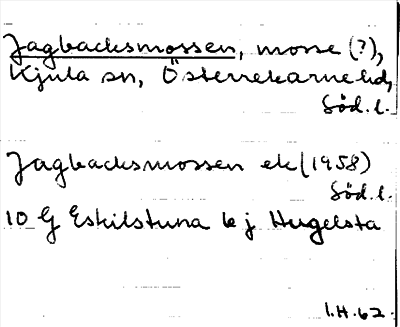 Jagbacksmossen, mosse (?),
Kjula sn, Österrekarne hd,
Söd. l.
Jagbacksmossen ek (1958)
Söd. l.
10 G Eskilstuna 6 j Hugelsta
I.H.62.